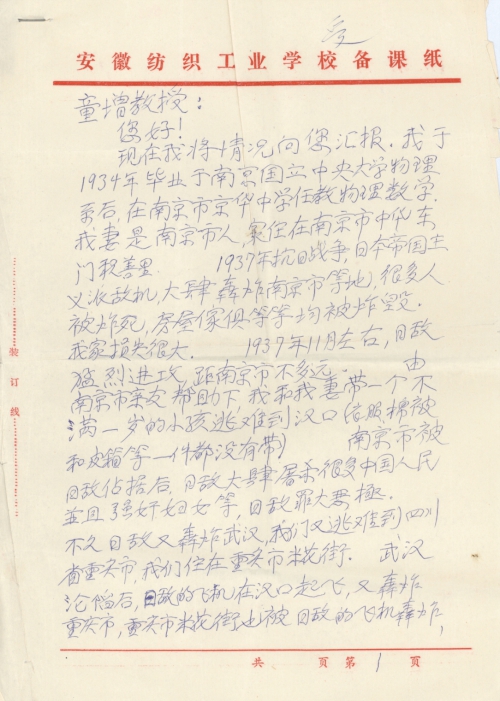 受
安徽纺织工业学校备课纸
童增教授：
您好！
现在我将情况向您汇报．我于
1934年毕业于南京国立中央大学物理
系后，在南京市京华中学任教物理数学．
我妻是南京市人，家住在南京市中华东
门积善里． 1937年抗日战争，日本帝国主
义派敌机，大肆轰炸南京市等地，很多人
被炸死，房屋傢俱等等均被炸毁．
我家损失很大． 1937年11月左右，日敌
猛烈进攻，距南京市不多远． 由
南京市亲友帮助下，我和我妻带一个不
满一岁的小孩逃难到汉口（衣服棉被
和皮箱等一件都没有带） 南京市被
日敌佔据后，日敌大肆屠杀很多中国人民
並且强奸妇女等，日敌罪大恶極．
不久日敌又轰炸武汉，我们又逃难到四川
省重庆市，我们住在重庆市米花街． 武汉
沦陷后，日敌的飞机在汉口起飞，又轰炸
重庆市，重庆市米花街也被日敌的飞机轰炸，
装订线
共 页 第 1 页